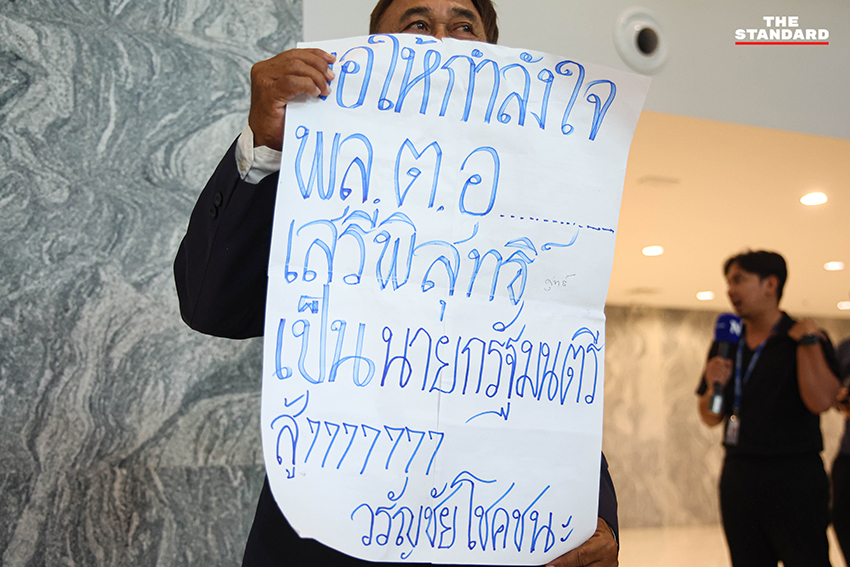 THE
STANDARD
ขอให้กำลังใจ
พล.ต.อ.............
เสรีพิสุทธิ์
เป็นนายกรัฐมนตรี
สู้ๆๆๆๆๆๆๆ
วรัญชัย โชคชนะ
N